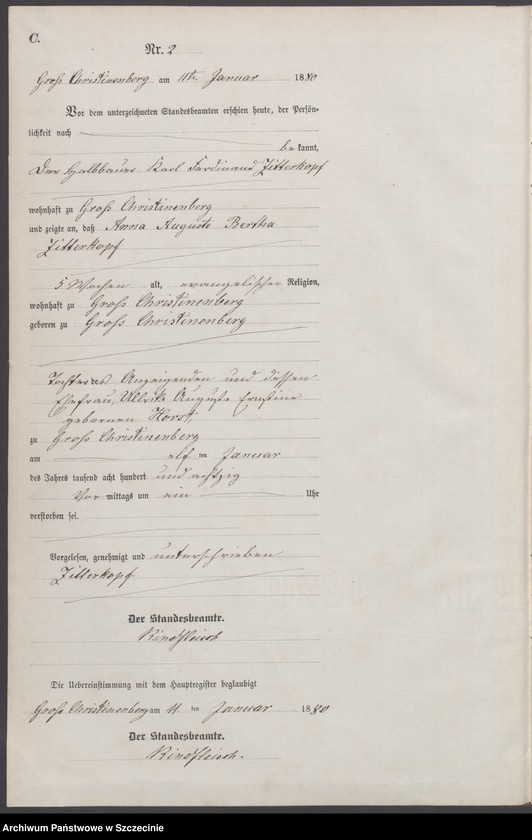 C.
Nr. 2
Groß Christinenberg am 11ten Januar 1880
Vor dem unterzeichneten Standesbeamten erschien heute, der Persön-
lichkeit nach
bekannt,
Der Halbbauer Karl Ferdinand Zitterkopf
wohnhaft zu Groß Christinenberg
und zeigte an, daß Anna Auguste Bertha
Zitterkopf
5 Wochen alt, evangelischer Religion,
wohnhaft zu Groß Christinenberg
geboren zu Groß Christinenberg
Tochter des Anzeigenden und dessen
Ehefrau, Ulrike Auguste Ernstine
geborenen Horst,
zu Groß Christinenberg
am elf ten Januar
des Jahres tausend acht hundert und achtzig
Vor mittags um ein Uhr
verstorben sei.
Vorgelesen, genehmigt und unterschrieben
Zitterkopf
Der Standesbeamte.
Rindfleisch
Die Uebereinstimmung mit dem Hauptregister beglaubigt
Groß Christinenberg am 11 ten Januar 1880
Der Standesbeamte.
Rindfleisch.
Archiwum Państwowe w Szczecinie